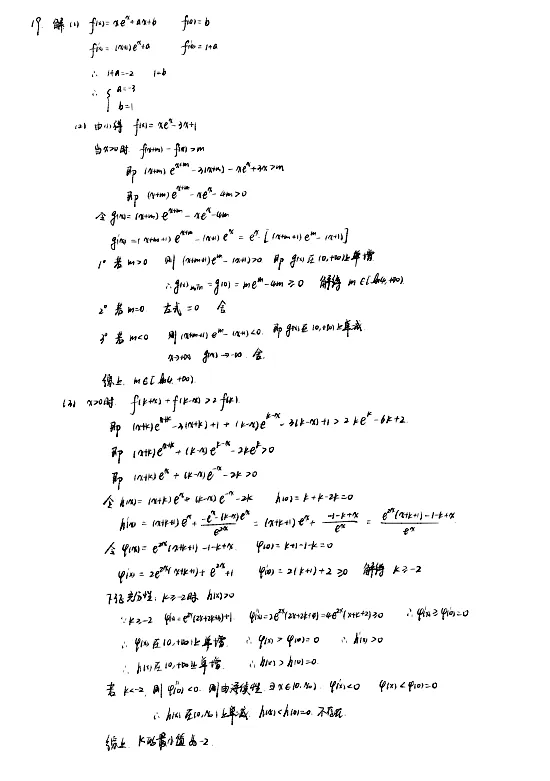 19. 解 (1) f(x)=xeˣ+ax+b f(0)=b
f'(x)=(x+1)eˣ+a f'(0)=1+a
∴ 1+a=-2 1=b
∴ { a=-3
b=1
(2) 由(1)得 f(x)=xeˣ-3x+1
当x>0时 f(x+m)-f(x)>m
即 (x+m)eˣ⁺ᵐ-3(x+m)-xeˣ+3x>m
即 (x+m)eˣ⁺ᵐ-xeˣ-4m>0
令 g(x)=(x+m)eˣ⁺ᵐ-xeˣ-4m
g'(x)=(x+m+1)eˣ⁺ᵐ-(x+1)eˣ=eˣ·[(x+m+1)eᵐ-(x+1)]
1° 若m>0 则 (x+m+1)eᵐ-(x+1)>0 即 g(x)在(0,+∞)上单增
∴g(x)min=g(0)=meᵐ-4m≥0 解得 m∈[ln4,+∞)
2° 若m=0 左式=0 舍
3° 若m<0 则(x+m+1)eᵐ-(x+1)<0 即g(x)在(0,+∞)上单减
x→+∞ g(x)→-∞ 舍.
综上 m∈[ln4,+∞)
(3) x>0时 f(k+x)+f(k-x)>2f(k)
即 (x+k)eˣ⁺ᵏ-3(x+k)+1+(k-x)eᵏ⁻ˣ-3(k-x)+1>2keᵏ-6k+2
即 (x+k)eˣ⁺ᵏ+(k-x)eᵏ⁻ˣ-2keᵏ>0
即 (x+k)eˣ+(k-x)e⁻ˣ-2k>0
令 h(x)=(x+k)eˣ+(k-x)e⁻ˣ-2k h(0)=k+k-2k=0
h'(x)=(x+k+1)eˣ+(-eˣ-(k-x)eˣ)/e²ˣ=(x+k+1)eˣ+(-1-k+x)/eˣ=(e²ˣ(x+k+1)-1-k+x)/eˣ
令 φ(x)=e²ˣ(x+k+1)-1-k+x φ(0)=k+1-1-k=0
φ'(x)=2e²ˣ(x+k+1)+e²ˣ+1 φ'(0)=2(k+1)+2≥0 解得 k≥-2
下证充分性: k≥-2时 h(x)>0
∵k≥-2 φ'(x)=e²ˣ(2x+2k+3)+1 φ''(x)=2e²ˣ(2x+2k+4)=4e²ˣ(x+k+2)≥0 ∴φ'(x)≥φ'(0)=0
∴φ(x)在(0,+∞)上单增 ∴φ(x)>φ(0)=0 ∴h'(x)>0
∴h(x)在(0,+∞)上单增 ∴h(x)>h(0)=0.
若 k<-2 则 φ'(0)<0 则由连续性 ∃x∈(0,x₀) φ'(x)<0 φ(x)<φ(0)=0
∴h(x)在(0,x₀)上单减 h(x)<h(0)=0.
综上 k的最小值为-2.